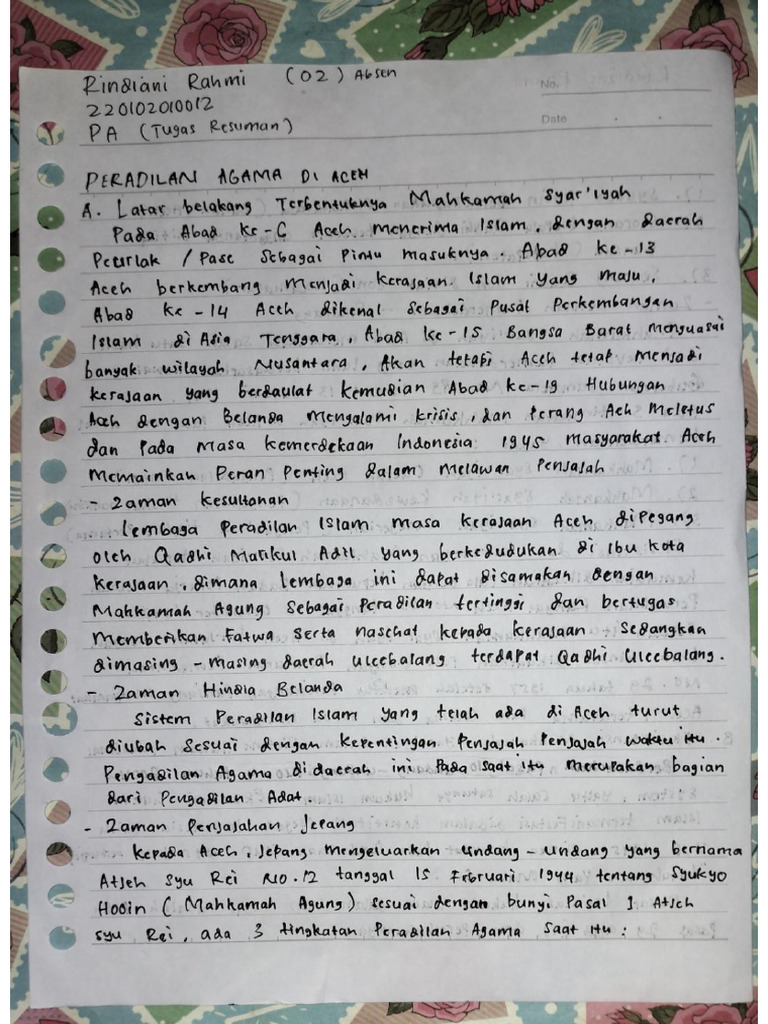 Rindiani Rahmi (02) Absen
No.
220102010012
Date
PA (Tugas Resuman)
PERADILAN AGAMA DI ACEH
A. Latar belakang Terbentuknya Mahkamah Syar'iyah
Pada Abad Ke-C Aceh menerima Islam, dengan daerah
Peurlak / Pase Sebagai Pintu masuknya. Abad ke-13
Aceh berkembang menjadi kerajaan Islam yang maju,
Abad ke-14 Aceh dikenal sebagai Pusat Perkembangan
Islam di Asia Tenggara, Abad ke-15 Bangsa Barat menguasai
banyak wilayah Nusantara, Akan tetapi Aceh tetap menjadi
kerajaan yang berdaulat kemudian Abad ke-19 Hubungan
Aceh dengan Belanda mengalami krisis, dan Perang Aeh Meletus
dan Pada masa kemerdekaan Indonesia 1945 masyarakat Aceh
memainkan Peran Penting dalam melawan Penjajah
- Zaman kesultanan
Lembaga Peradilan Islam masa kerajaan Aceh dipegang
oleh Qadhi Malikul Adil yang berkedudukan di ibu kota
kerajaan, dimana lembaga ini dapat disamakan dengan
Mahkamah Agung sebagai Peradilan tertinggi dan bertugas
memberikan Fatwa serta nasehat kepada kerajaan. Sedangkan
dimasing-masing daerah uleebalang terdapat Qadhi Uleebalang.
- Zaman Hindia Belanda
Sistem Peradilan Islam yang telah ada di Aceh turut
diubah sesuai dengan kepentingan Penjajah Penjajah waktu itu.
Pengadilan Agama didaerah ini Pada saat itu merupakan bagian
dari Pengadilan Adat.
- Zaman Penjajahan Jepang
kepada Aceh, Jepang mengeluarkan undang-undang yang bernama
Atjeh Syu Rei No.12 tanggal 15 Februari 1944 tentang Syukyo
Hooin (Mahkamah Agung) sesuai dengan bunyi Pasal 1 Atjeh
syu Rei, ada 3 tingkatan Peradilan Agama saat itu: